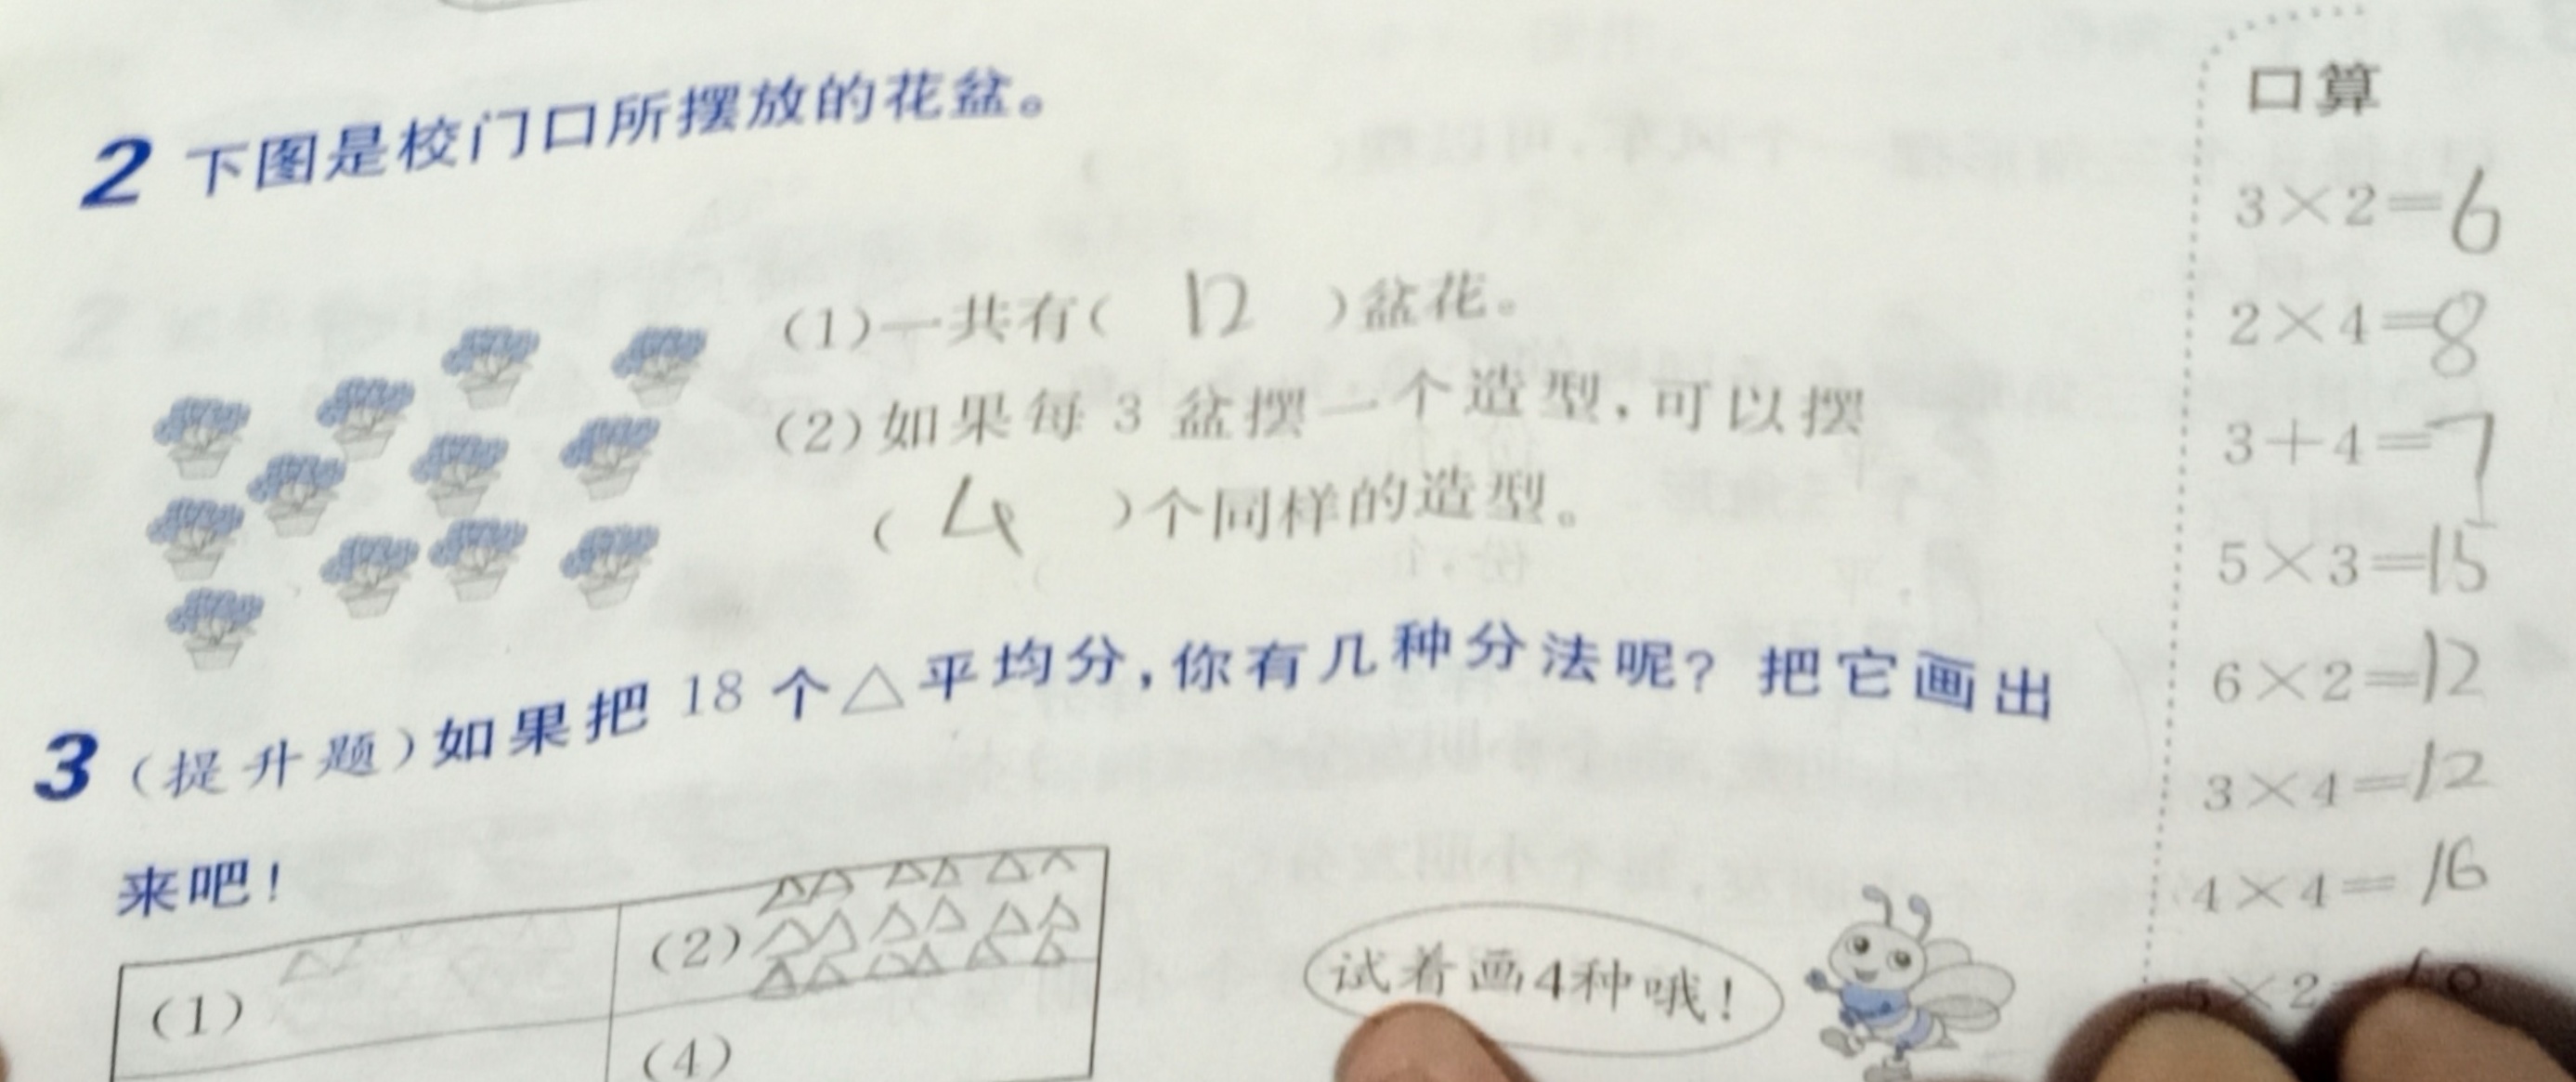 2 下图是校门口所摆放的花盆。
(1)一共有( 12 )盆花。
(2)如果每 3 盆摆一个造型,可以摆
( 4 )个同样的造型。
3 (提升题)如果把 18 个△平均分,你有几种分法呢? 把它画出
来吧!
(1)
(2)
(4)
试着画4种哦!
口算
3×2=6
2×4=8
3+4=7
5×3=15
6×2=12
3×4=12
4×4=16
5×2